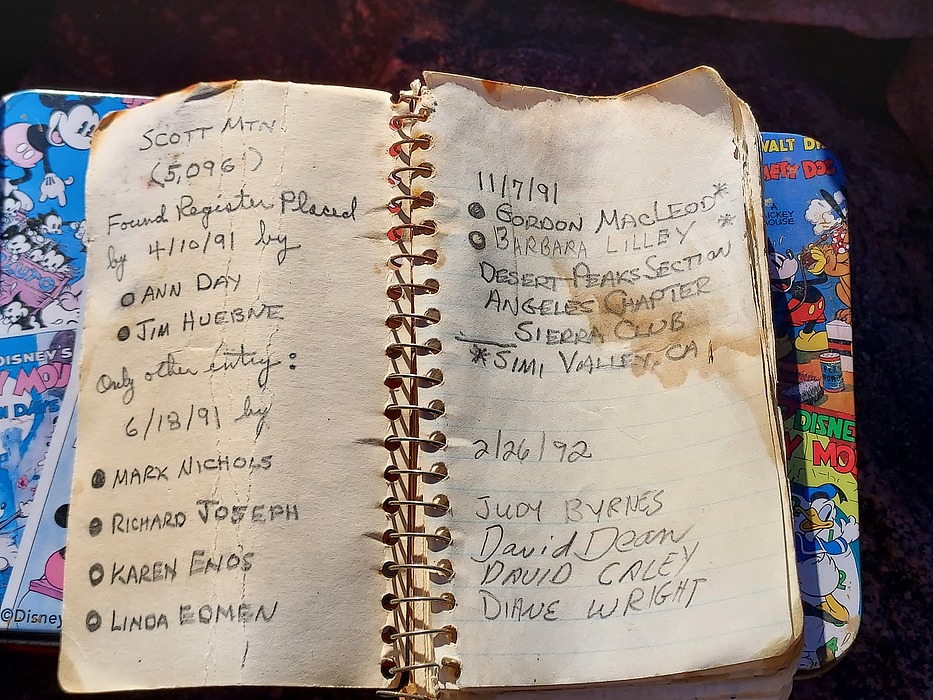 SCOTT MTN.
(5,096')
Found Register Placed
by 4/10/91 by
ANN DAY
JIM HUEBNE
Only other entry:
6/18/91 by
MARK NICHOLS
RICHARD JOSEPH
KAREN ENOS
LINDA EDMEN
11/7/91
GORDON MACLEOD*
BARBARA LILLEY *
DESERT PEAKS SECTION
ANGELES CHAPTER
SIERRA CLUB
*SIMI VALLEY, CA
2/26/92
JUDY BYRNES
David Dean
DAVID CALEY
DIANE WRIGHT
DISNEY'S
DAYS
©Disney
WALT
DOG
MICKEY
MOUSE
DISNEY
MO